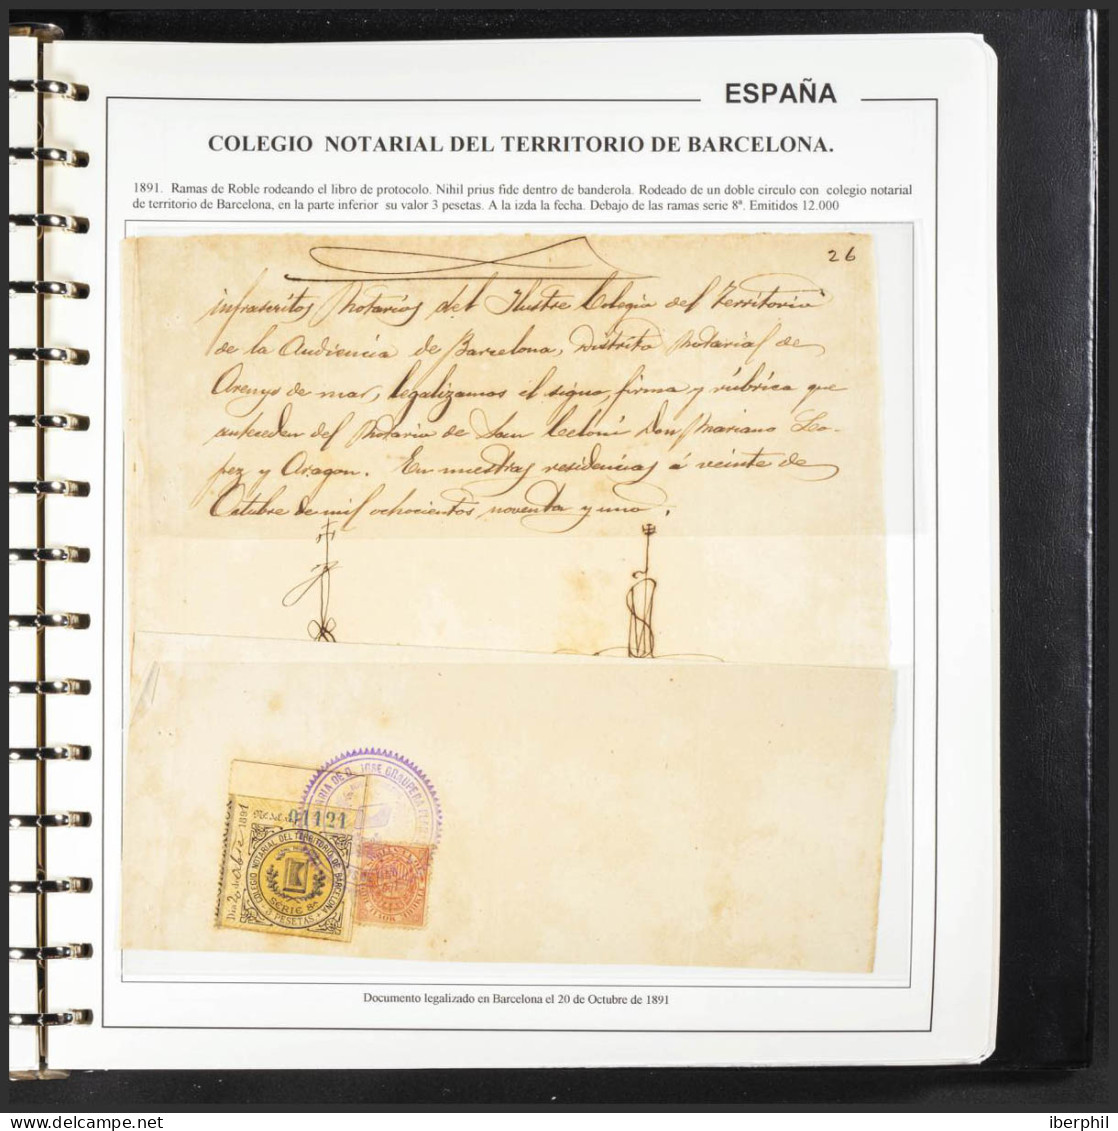 ESPAÑA
COLEGIO NOTARIAL DEL TERRITORIO DE BARCELONA.
1891. Ramas de Roble rodeando el libro de protocolo. Nihil prius fide dentro de banderola. Rodeado de un doble circulo con colegio notarial
de territorio de Barcelona, en la parte inferior su valor 3 pesetas. A la izda la fecha. Debajo de las ramas serie 8ª. Emitidos 12.000
26
infrascritos Notarios del Ilustre Colegio del Territorio
de la Audiencia de Barcelona, Distrito Notarial de
Arenys de mar, legalizamos el signo, firma y rúbrica que
anteceden del Notario de San Celoni Don Mariano Lo-
pez y Aragon. En nuestras residencias á veinte de
Octubre de mil ochocientos noventa y uno.
NOTARIA DE D. JOSE GRAUPERA
01121
1891
Dia 20 de Obre
COLEGIO NOTARIAL DEL TERRITORIO DE BARCELONA
SERIE 8ª
3 PESETAS
Documento legalizado en Barcelona el 20 de Octubre de 1891
iberphil